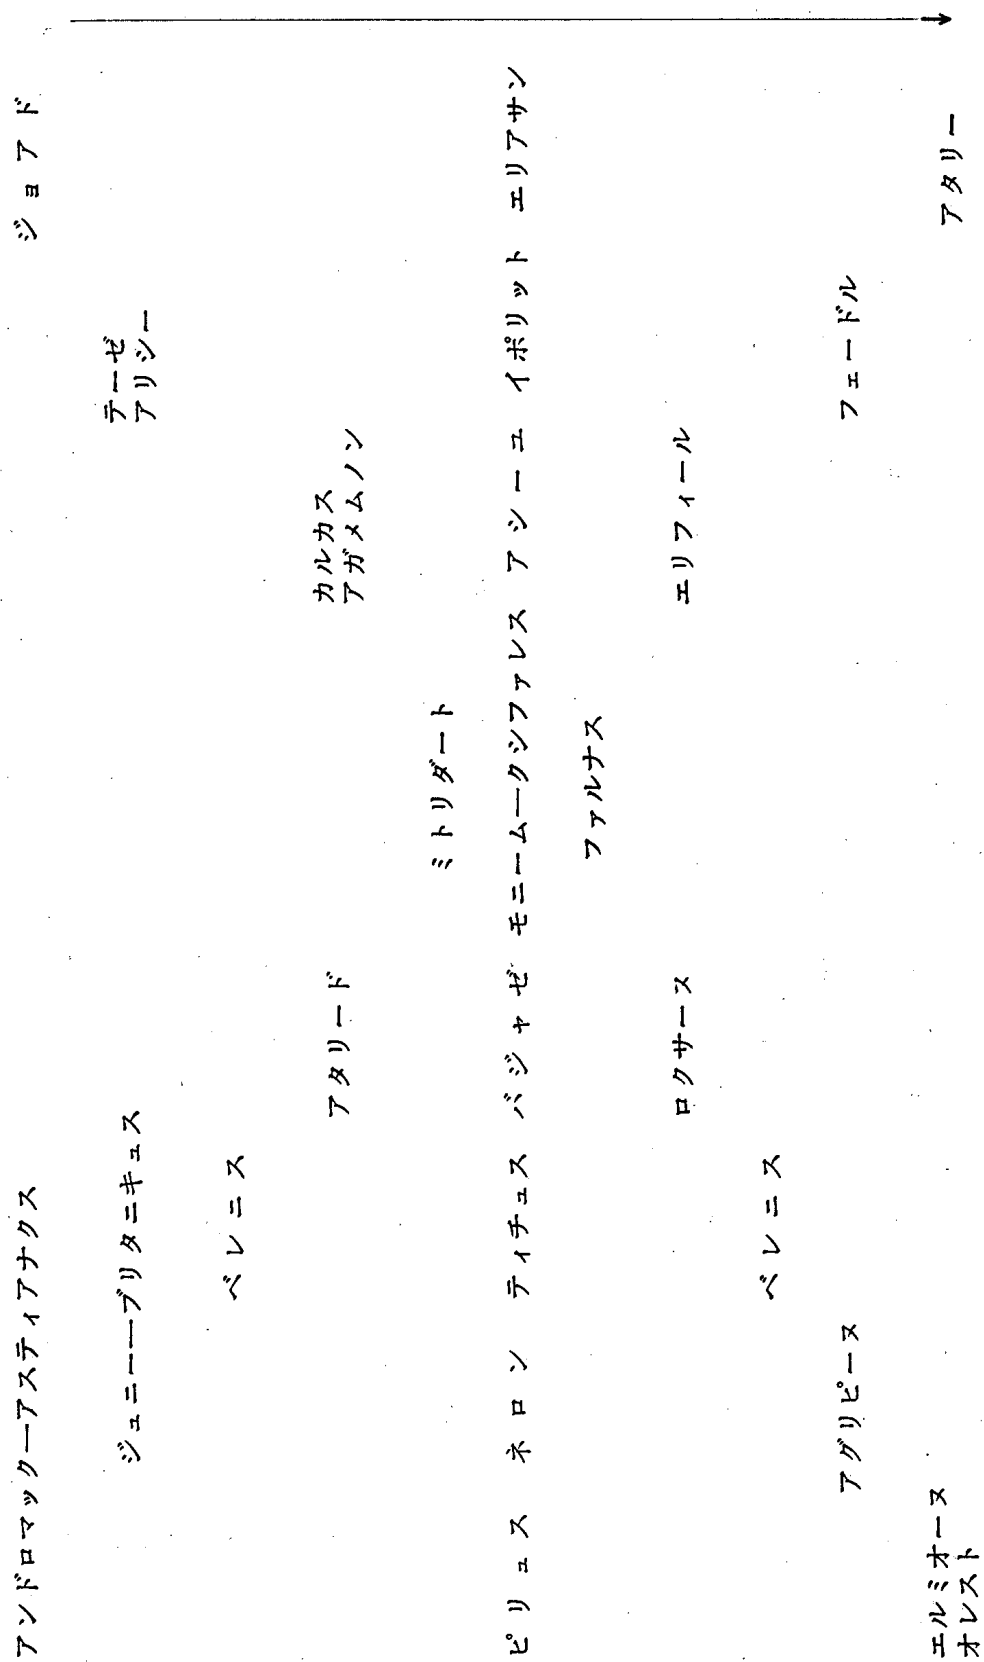 アンドロマック―アスティアナクス ジョアド
テーゼ
ジュニー―ブリタニキュス
アリシー
ベレニス
カルカス
アタリード
アガメムノン
ミトリダート
ピリュス ネロン ティチュス バジャゼ モニーム―クシファレス アシーユ イポリット エリアサン
ファルナス
ロクサーヌ エリフィール
ベレニス
アグリピーヌ フェードル
エルミオーヌ アタリー
オレスト